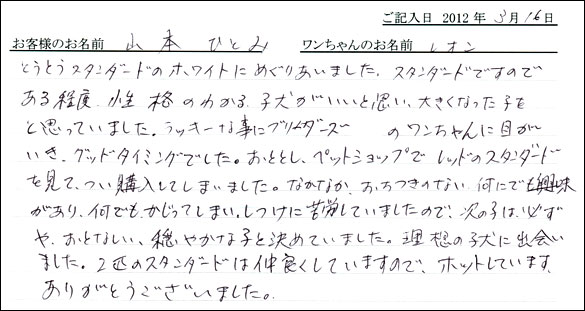 ご記入日 2012年 3月 16日
お客様のお名前 山本 ひとみ ワンちゃんのお名前 レオン
とうとうスタンダードのホワイトにめぐりあいました。スタンダードですので
ある程度、性格のわかる、子犬がいいと思い、大きくなった子を
と思っていました。ラッキーな事にブリーダーズ のワンちゃんに目が
いき、グッドタイミングでした。おととし、ペットショップで レッドのスタンダード
を見て、つい購入してしまいました。なかなか、おちつきのない、何にでも興味
があり、何でも、かじってしまい、しつけに苦労していましたので、次の子は、必ず
や、おとなしい、穏やかな子と決めていました。理想の子犬に出会い
ました。2匹のスタンダードは仲良くしていますので、ホットしています。
ありがとうございました。